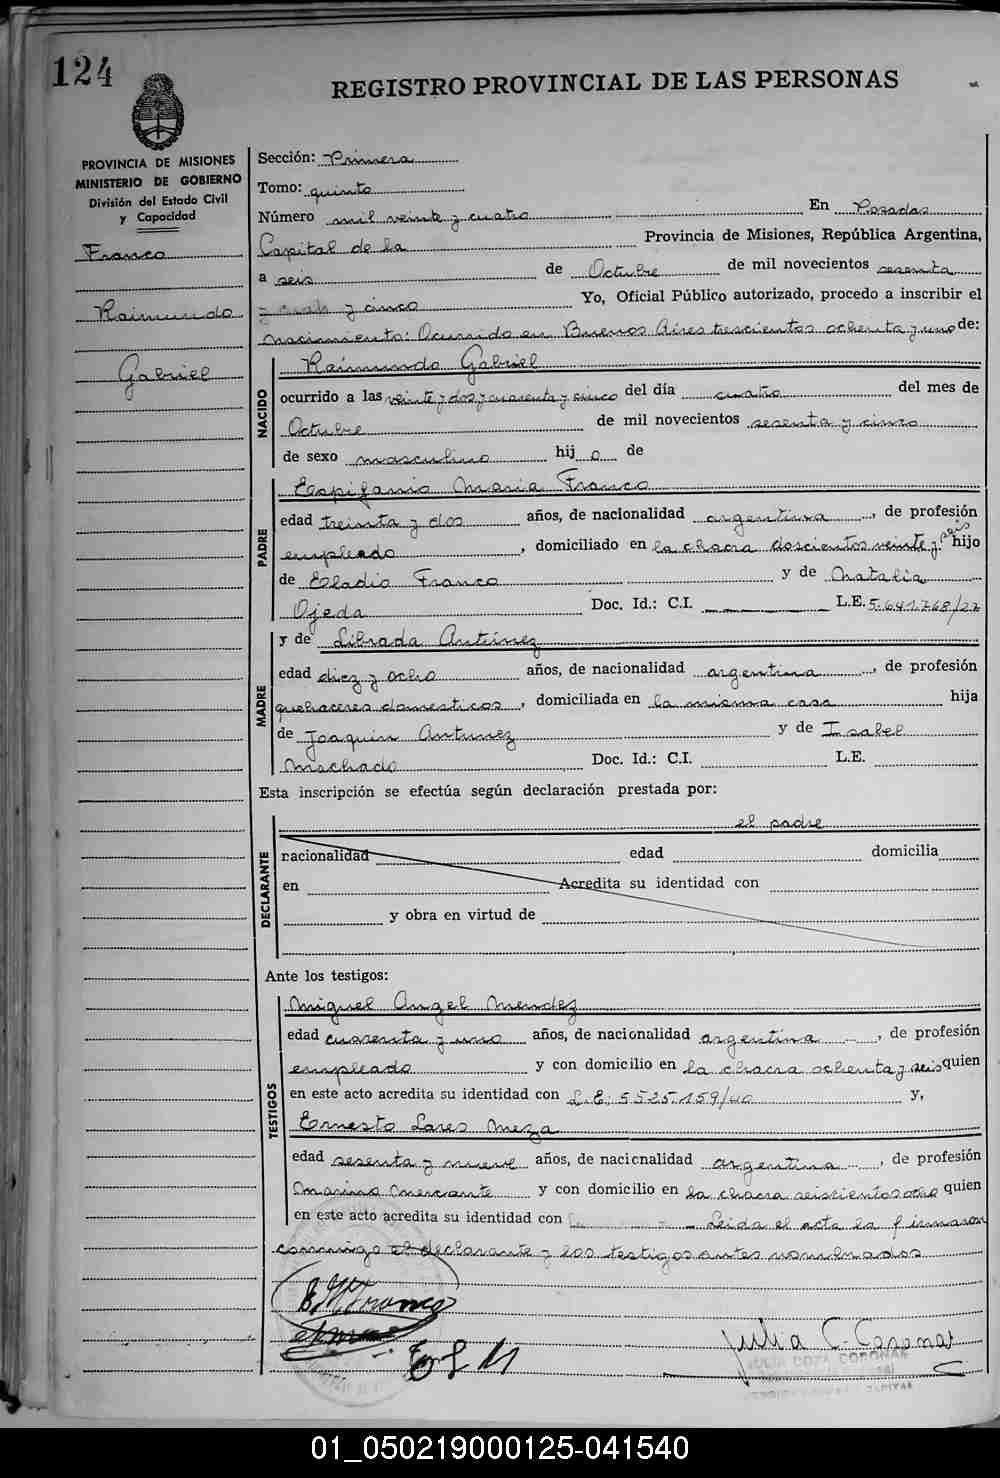 124
REGISTRO PROVINCIAL DE LAS PERSONAS
PROVINCIA DE MISIONES
MINISTERIO DE GOBIERNO
División del Estado Civil
y Capacidad
Franco
Raimundo
Gabriel
Sección: Primera
Tomo: quinto
Número mil veinte y cuatro En Posadas
Capital de la Provincia de Misiones, República Argentina,
a seis de Octubre de mil novecientos sesenta
y cinco Yo, Oficial Público autorizado, procedo a inscribir el
nacimiento: Ocurrido en Buenos Aires trescientos ochenta y uno de:
NACIDO
Raimundo Gabriel
ocurrido a las veinte y dos y cuarenta y cinco del día cuatro del mes de
Octubre de mil novecientos sesenta y cinco
de sexo masculino hijo de
PADRE
Epifanio Maria Franco
edad treinta y dos años, de nacionalidad argentina, de profesión
empleado, domiciliado en la chacra doscientos veinte y seis hijo
de Eladio Franco y de Natalia
Ojeda Doc. Id.: C.I. L.E. 5.641.768/27
MADRE
y de Librada Antúnez
edad diez y ocho años, de nacionalidad argentina, de profesión
quehaceres domesticos, domiciliada en la misma casa hija
de Joaquin Antunez y de Isabel
Machado Doc. Id.: C.I. L.E.
Esta inscripción se efectúa según declaración prestada por:
DECLARANTE
el padre
nacionalidad edad domicilia
en Acredita su identidad con
y obra en virtud de
Ante los testigos:
TESTIGOS
Miguel Angel Mendez
edad cuarenta y uno años, de nacionalidad argentina, de profesión
empleado y con domicilio en la chacra ochenta y seis quien
en este acto acredita su identidad con L.E: 5525.159/40 y,
Ernesto Lares Meza
edad sesenta y nueve años, de nacionalidad argentina, de profesión
Marino Mercante y con domicilio en la chacra seiscientos ocho quien
en este acto acredita su identidad con Leida el acta la firmaron
conmigo el declarante y los testigos antes nombrados
E M Franco
E L M
Julia C. Coronas
01_050219000125-041540